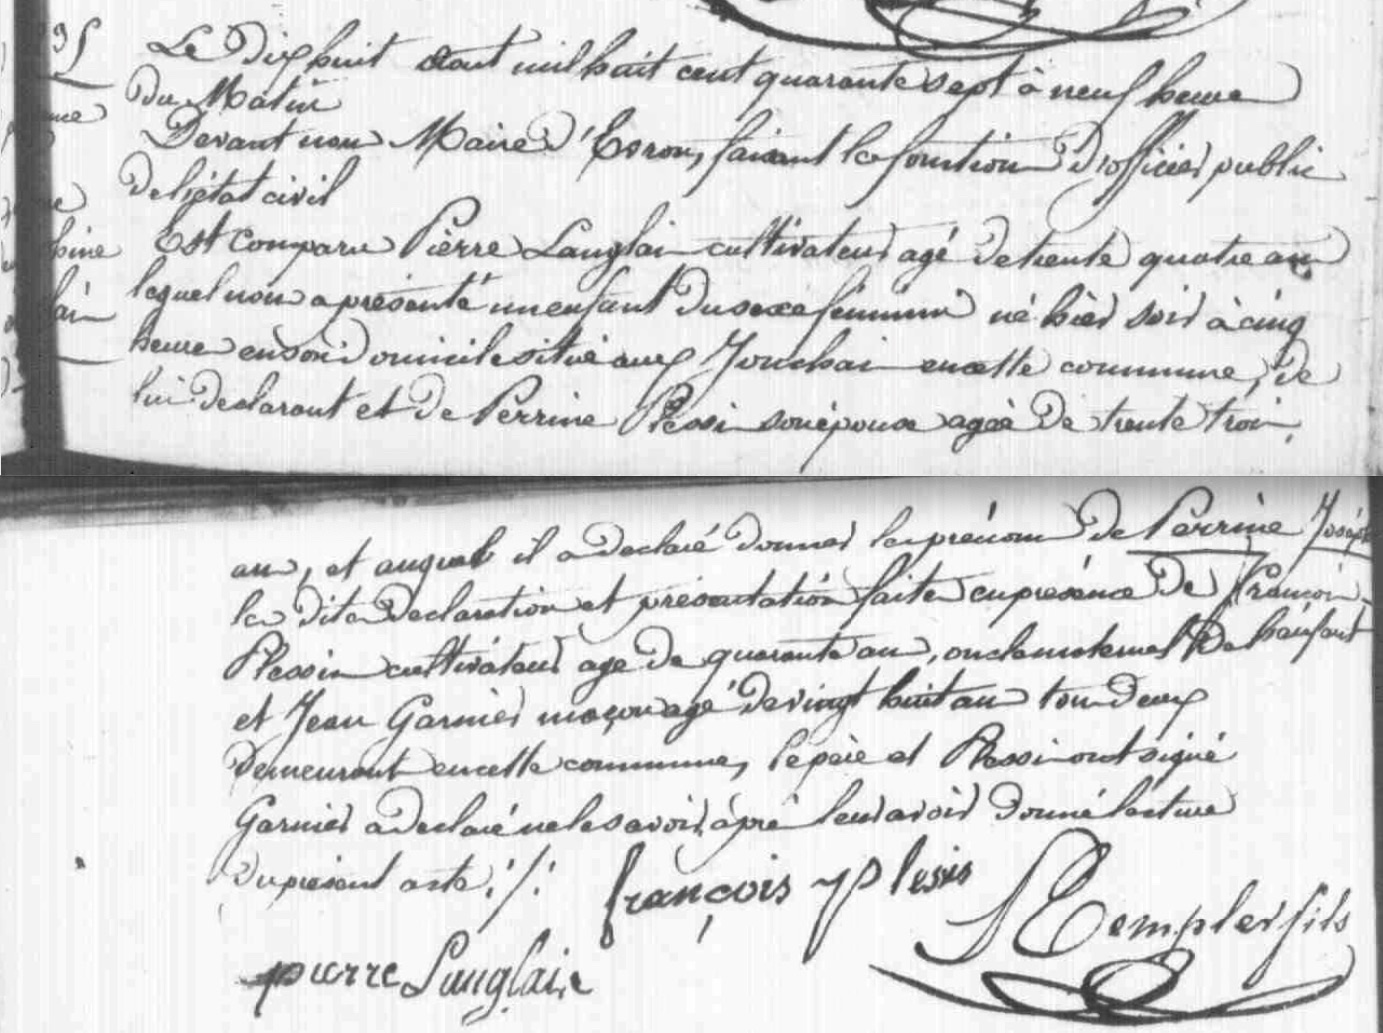 Le Dixhuit aout mil huit cent quarante sept à neuf heure
du Matin
Devant nous Maire d'Esron, faisant les fonctions d'officier public
de l'état civil
Est comparu Pierre Langlais cultivateur agé de trente quatre ans
lequel nous a présenté un enfant du sexe féminin né hièr soir à cinq
heure en son domicile situé aux Jonchai en cette commune, de
lui declarant et de Perrine Plessis son épouse agée de trente trois
ans, et auquel il a declaré donner les prénoms de Perrine Joséph
la dite declaration et présentation faite en présence de François
Plessis cultivateur age de quarante ans, oncle maternel de l'enfant
et Jean Garnier maçon agé de vingt huit ans tous deux
demeurant en cette commune, le père et Plessis ont signé
Garnier a declaré ne le savoir, après leur avoir donné lecture
du présent acte ./.
françois plesis
Templer fils
pierre Langlais